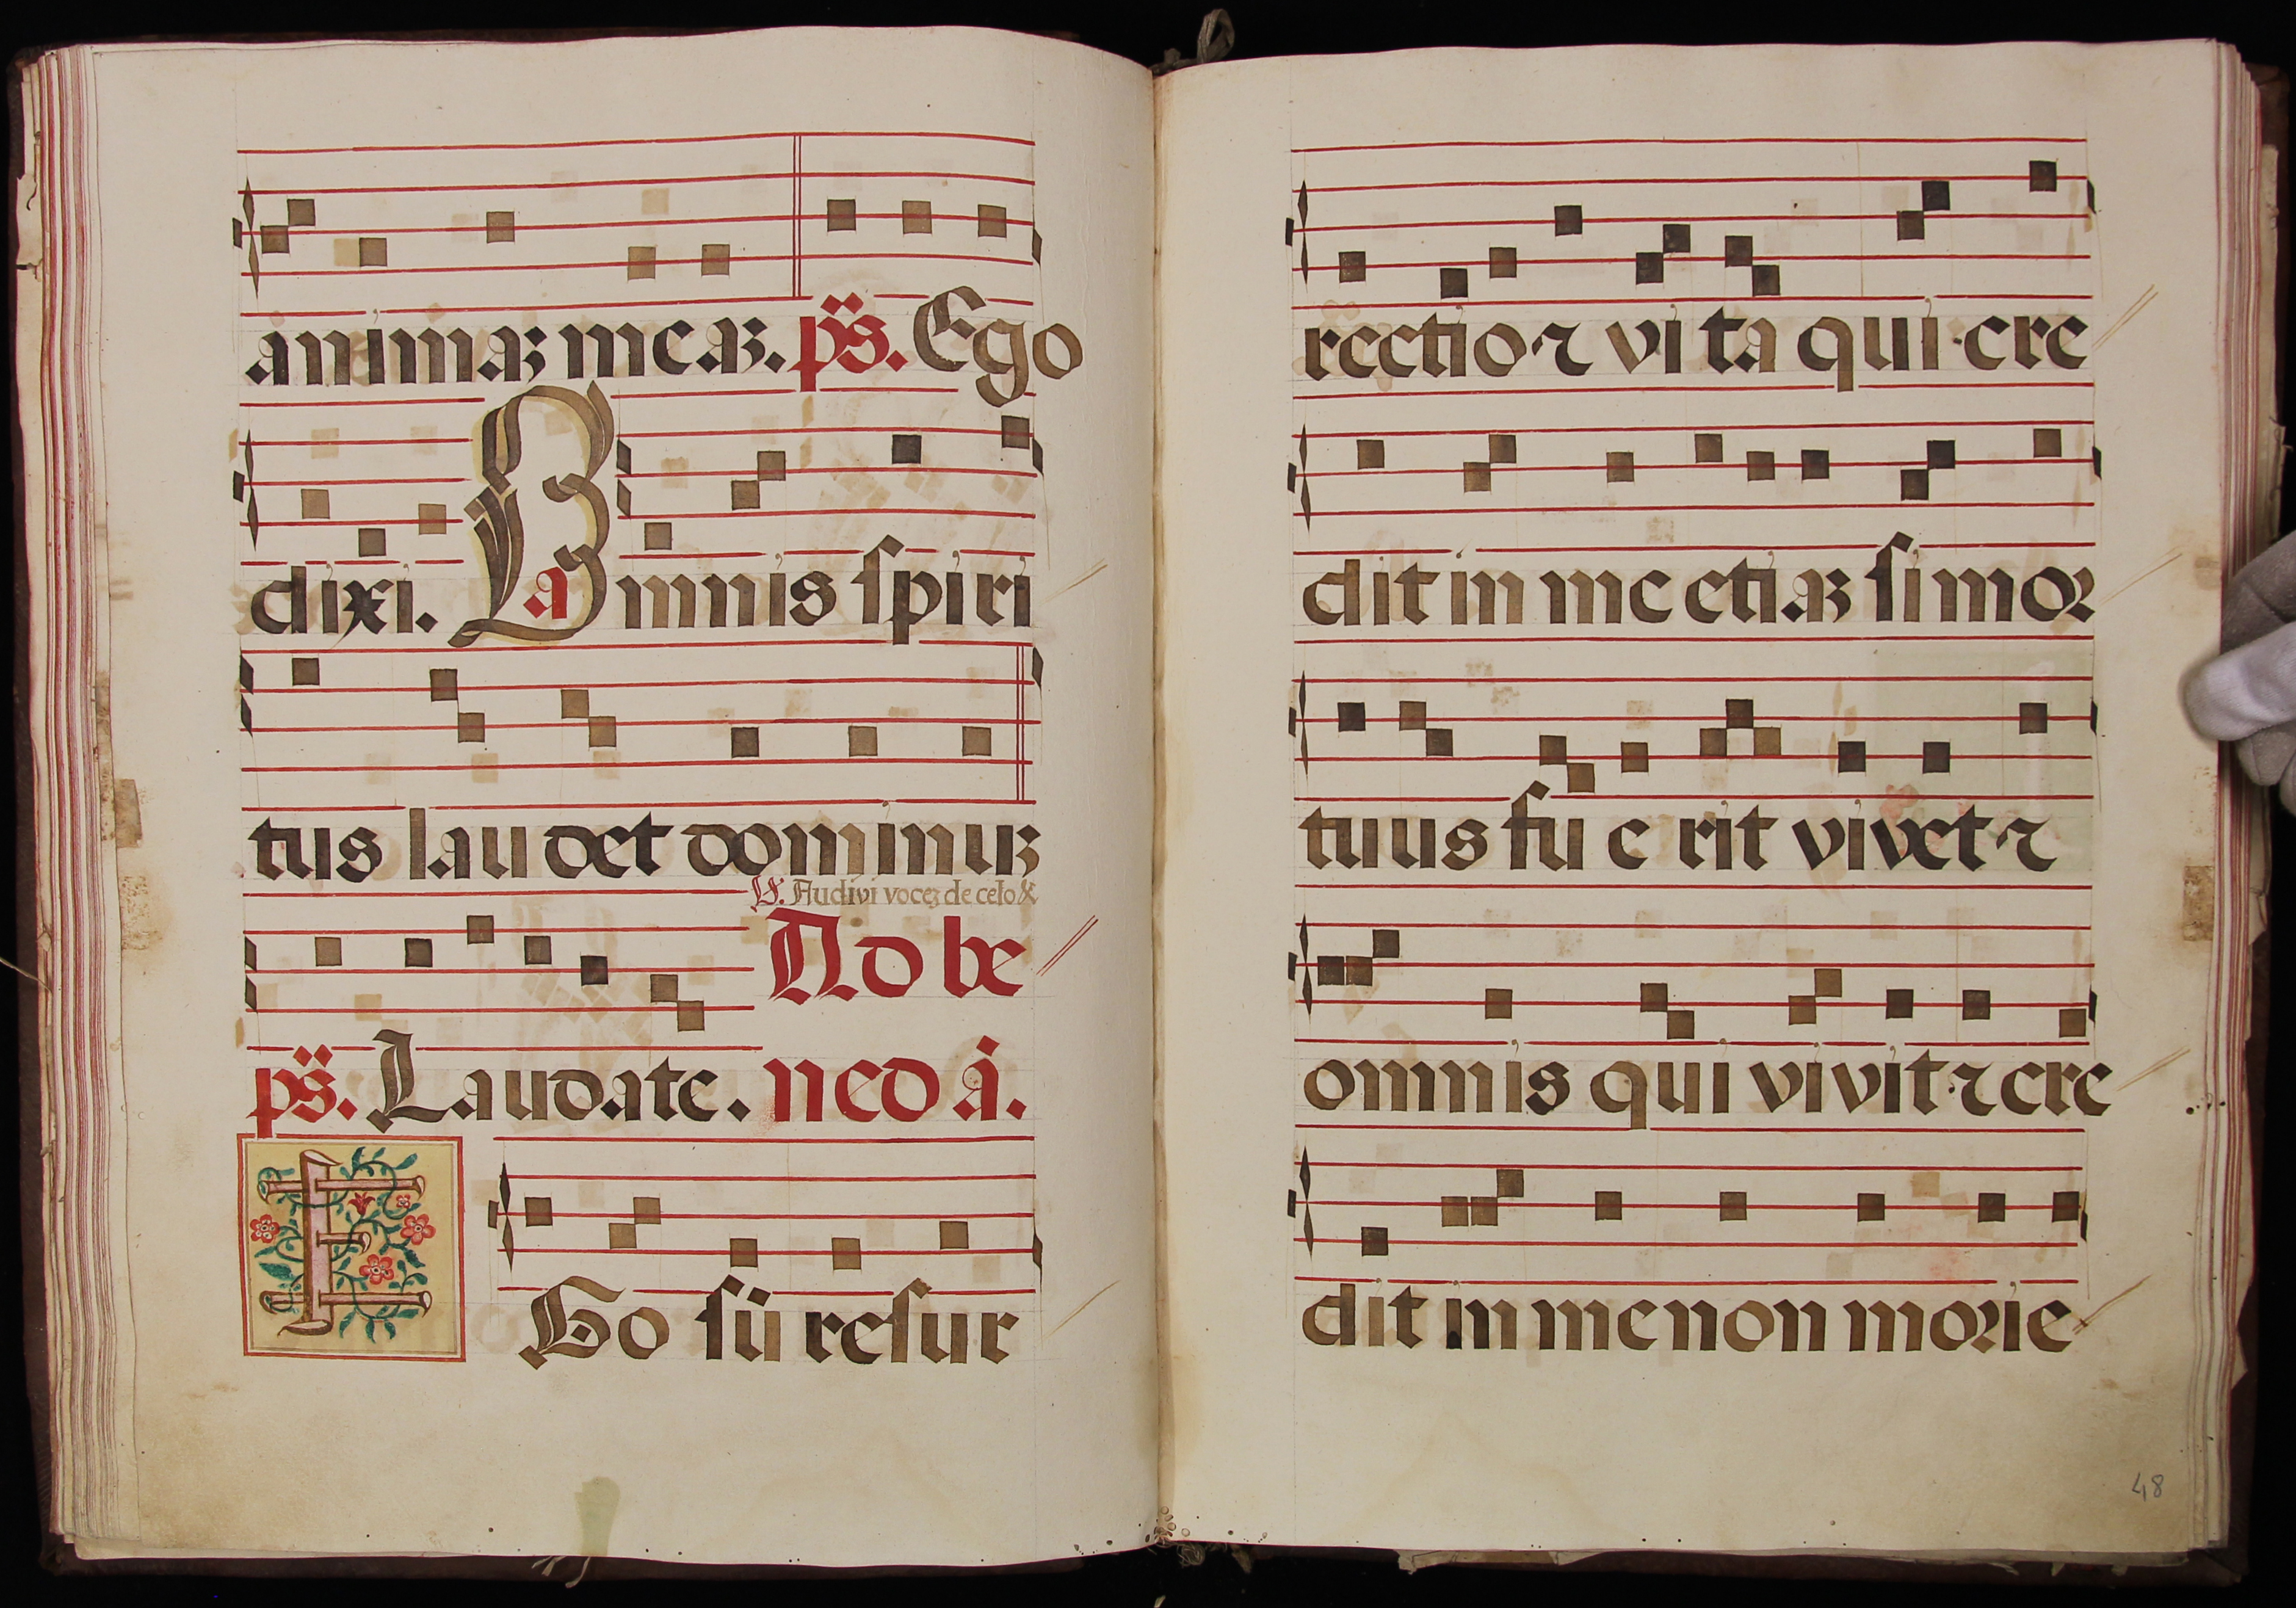 animaꝫ meaꝫ. ps̈. Ego
dixi. a Omnis spiri
tus laudet dominuꝫ
℣. Audivi voceꝫ de celo &
Ad be
ps̈. Laudate. ned á.
EGo sū resur
rectio ⁊ vita qui cre
dit in me etiaꝫ si mor
tuus fuerit vivet ⁊
omnis qui vivit ⁊ cre
dit in me non morie
48